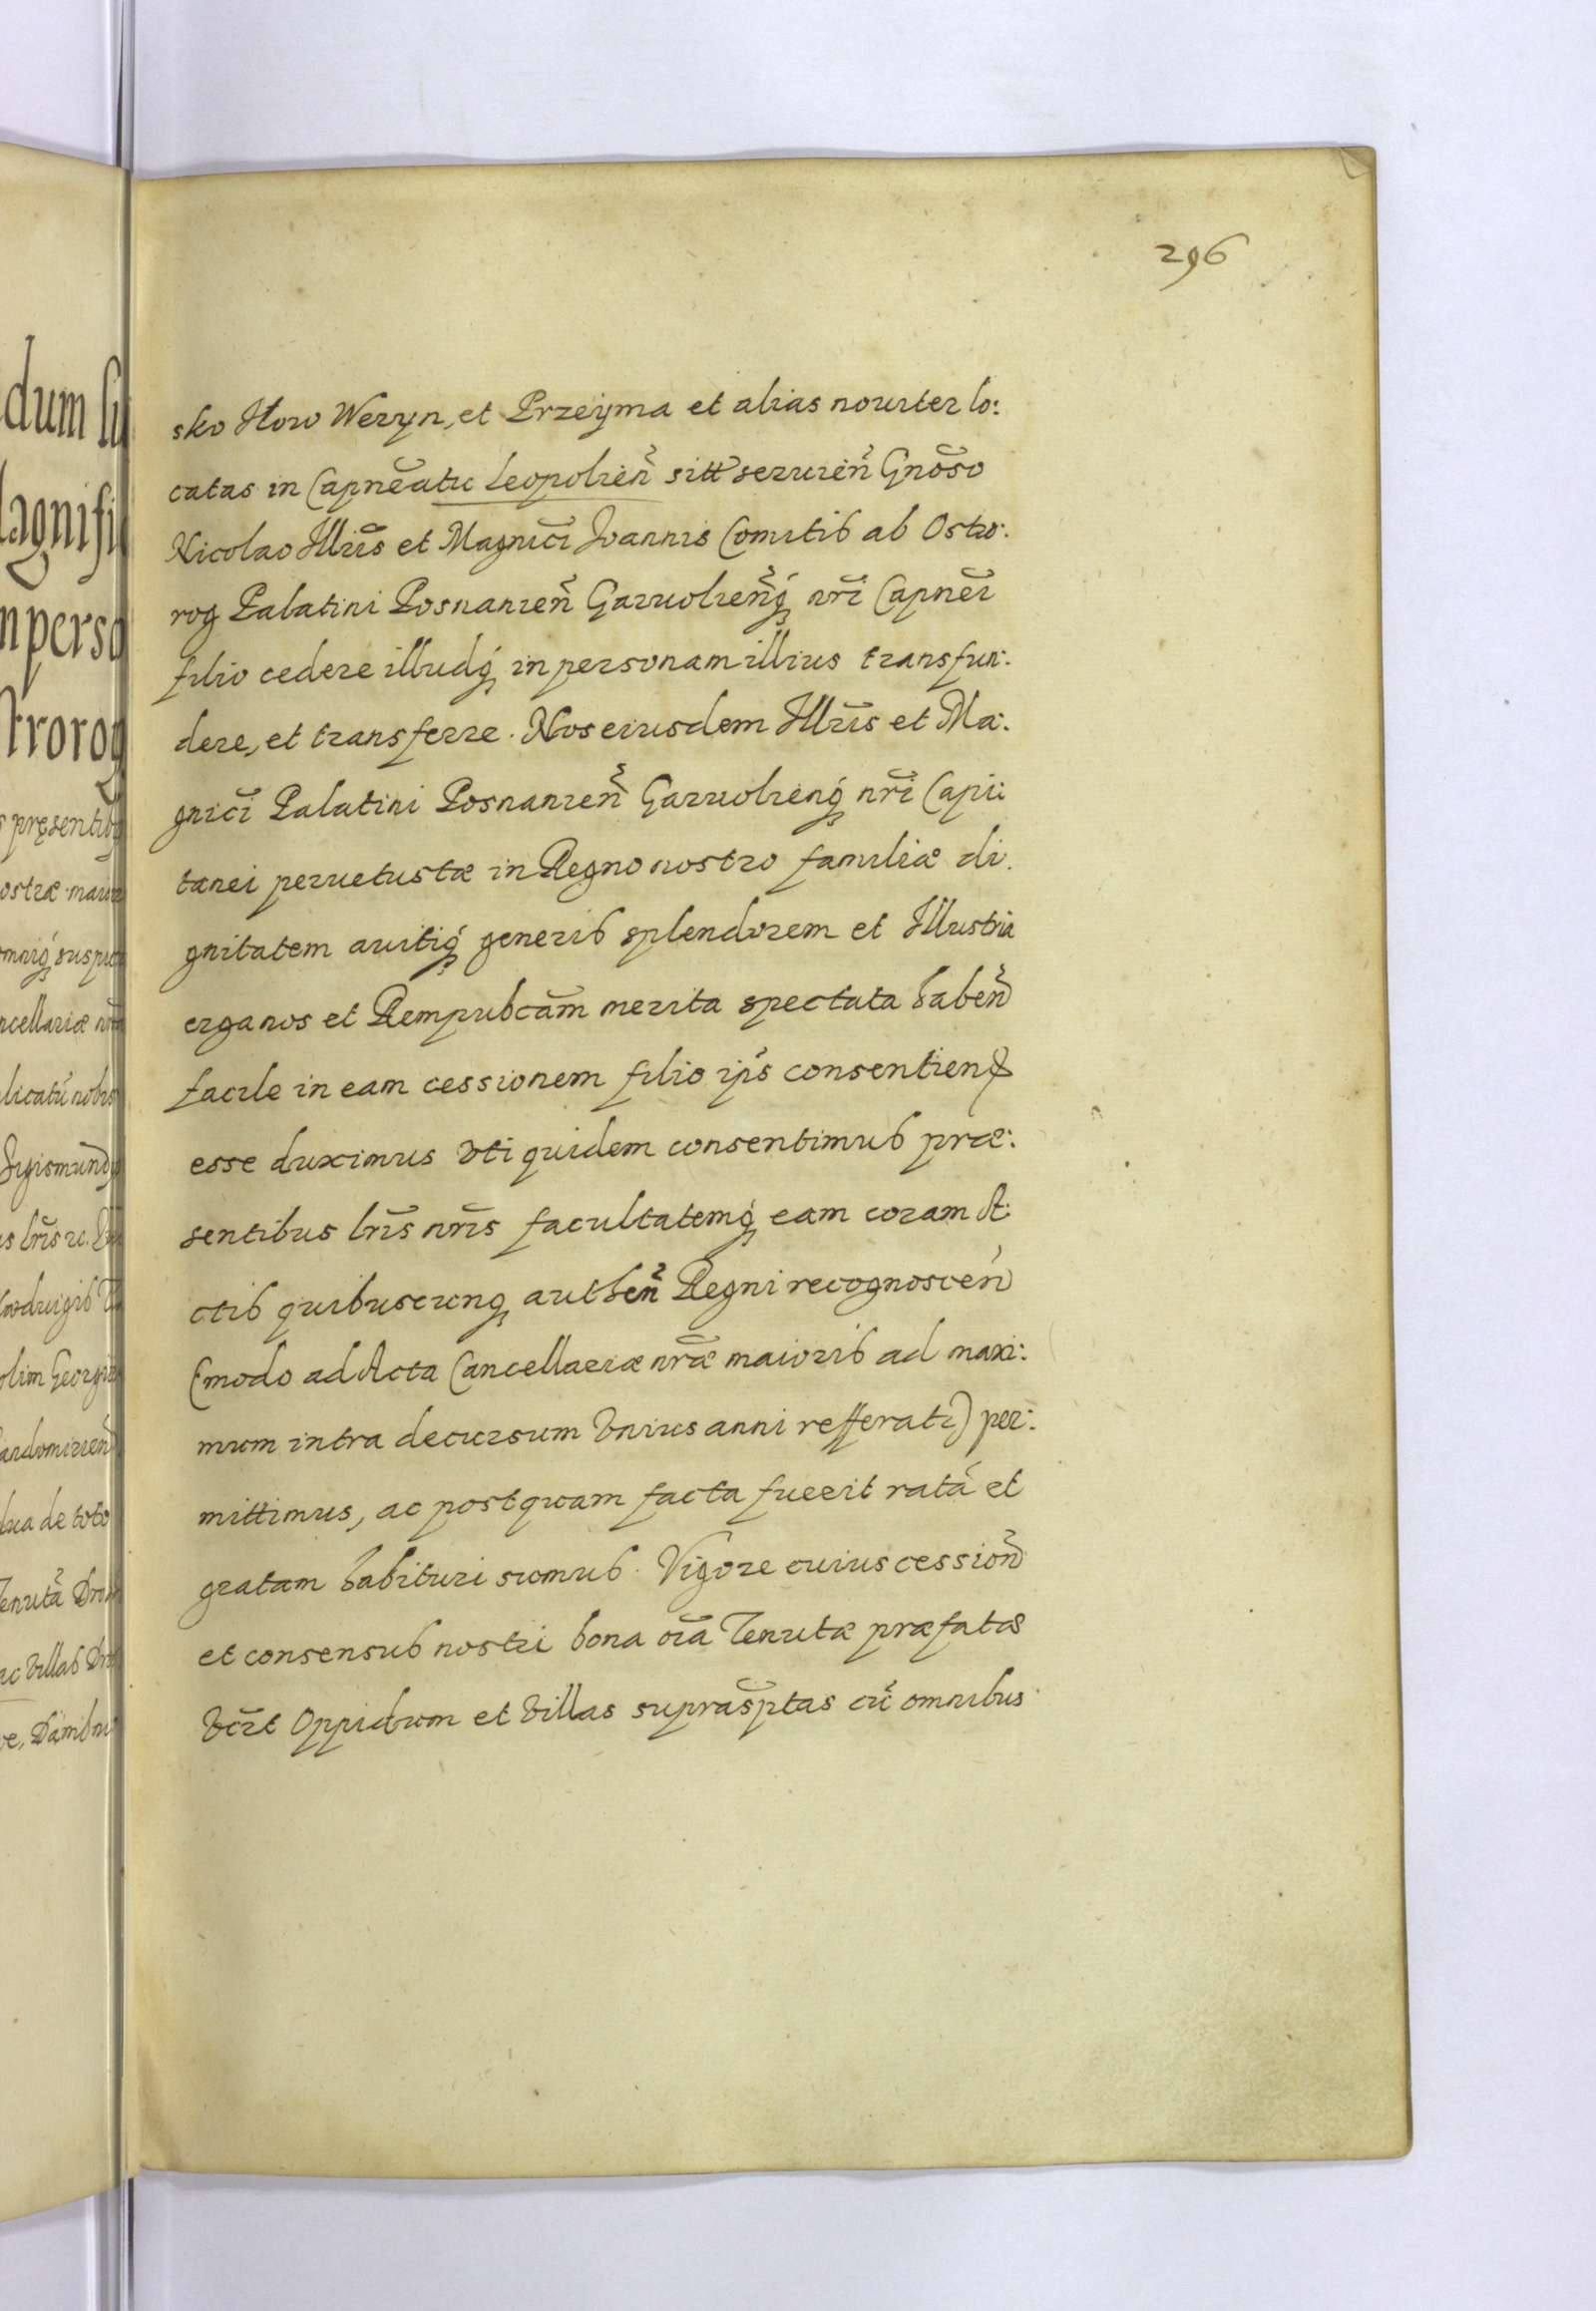 296
sko Horo Weryn, et Przeyma et alias nouiter lo:
catas in Capnẽatu Leopolien̄ sitt seruien̄ Gnõso
Nicolao Illris̃ et Magnicĩ Joannis Comitis ab Ostro:
rog Palatini Posnanien̄ Garuolien̄q́ nrĩ Capneĩ
filio cedere illudq́ in personam illius transfun:
dere, et transferre. Nos eiusdem Illris̃ et Ma:
gnicĩ Palatini Posnanien̄ Garuolienq́ nrĩ Capi:
tanei peruetustæ in Regno nostro familiæ di:
gnitatem auitiq́ generis splendorem et Illustria
erga nos et Rempubcam̃ merita spectata haben̄
facile in eam cessionem filio ips̃ consentiend
esse duximus vti quidem consentimus præ:
sentibus lris̃ nris̃ facultatemq́ eam coram A:
ctis quibuscunq authen̄ Regni recognoscen̄
(modo ad Acta Cancellariæ nrã̃e maioris ad maxi:
mum intra decursum vnius anni refferatr) per:
mittimus, ac postquam facta fuerit ratã et
gratam habituri sumus. Vigore cuius cession̄
et consensus nostri bona oiã Tenutæ præfatæ
vczt Oppidum et villas suprasp̃tas cũ omnibus
dum
perso
pręsentib
ncellariæ
licatũ nobis
Sigismund
olim Georgi
de toto
villas